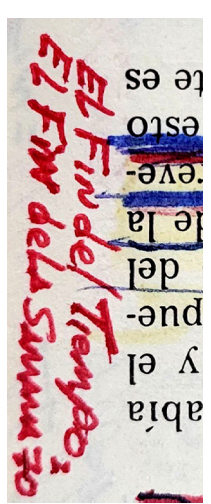 El Fin del Tiempo:
El Fin dela
abía
y el
pue-
del
de la
reve-
esto
te es